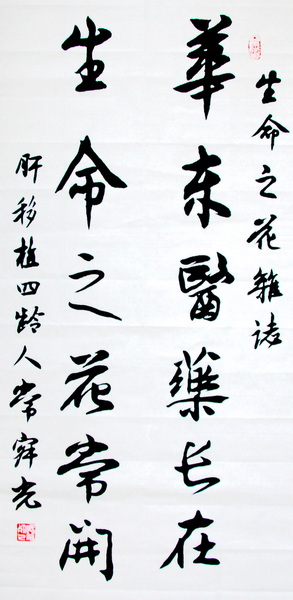 生命之花雜誌
華东醫藥长在
生命之花常開
肝移植四龄人常光